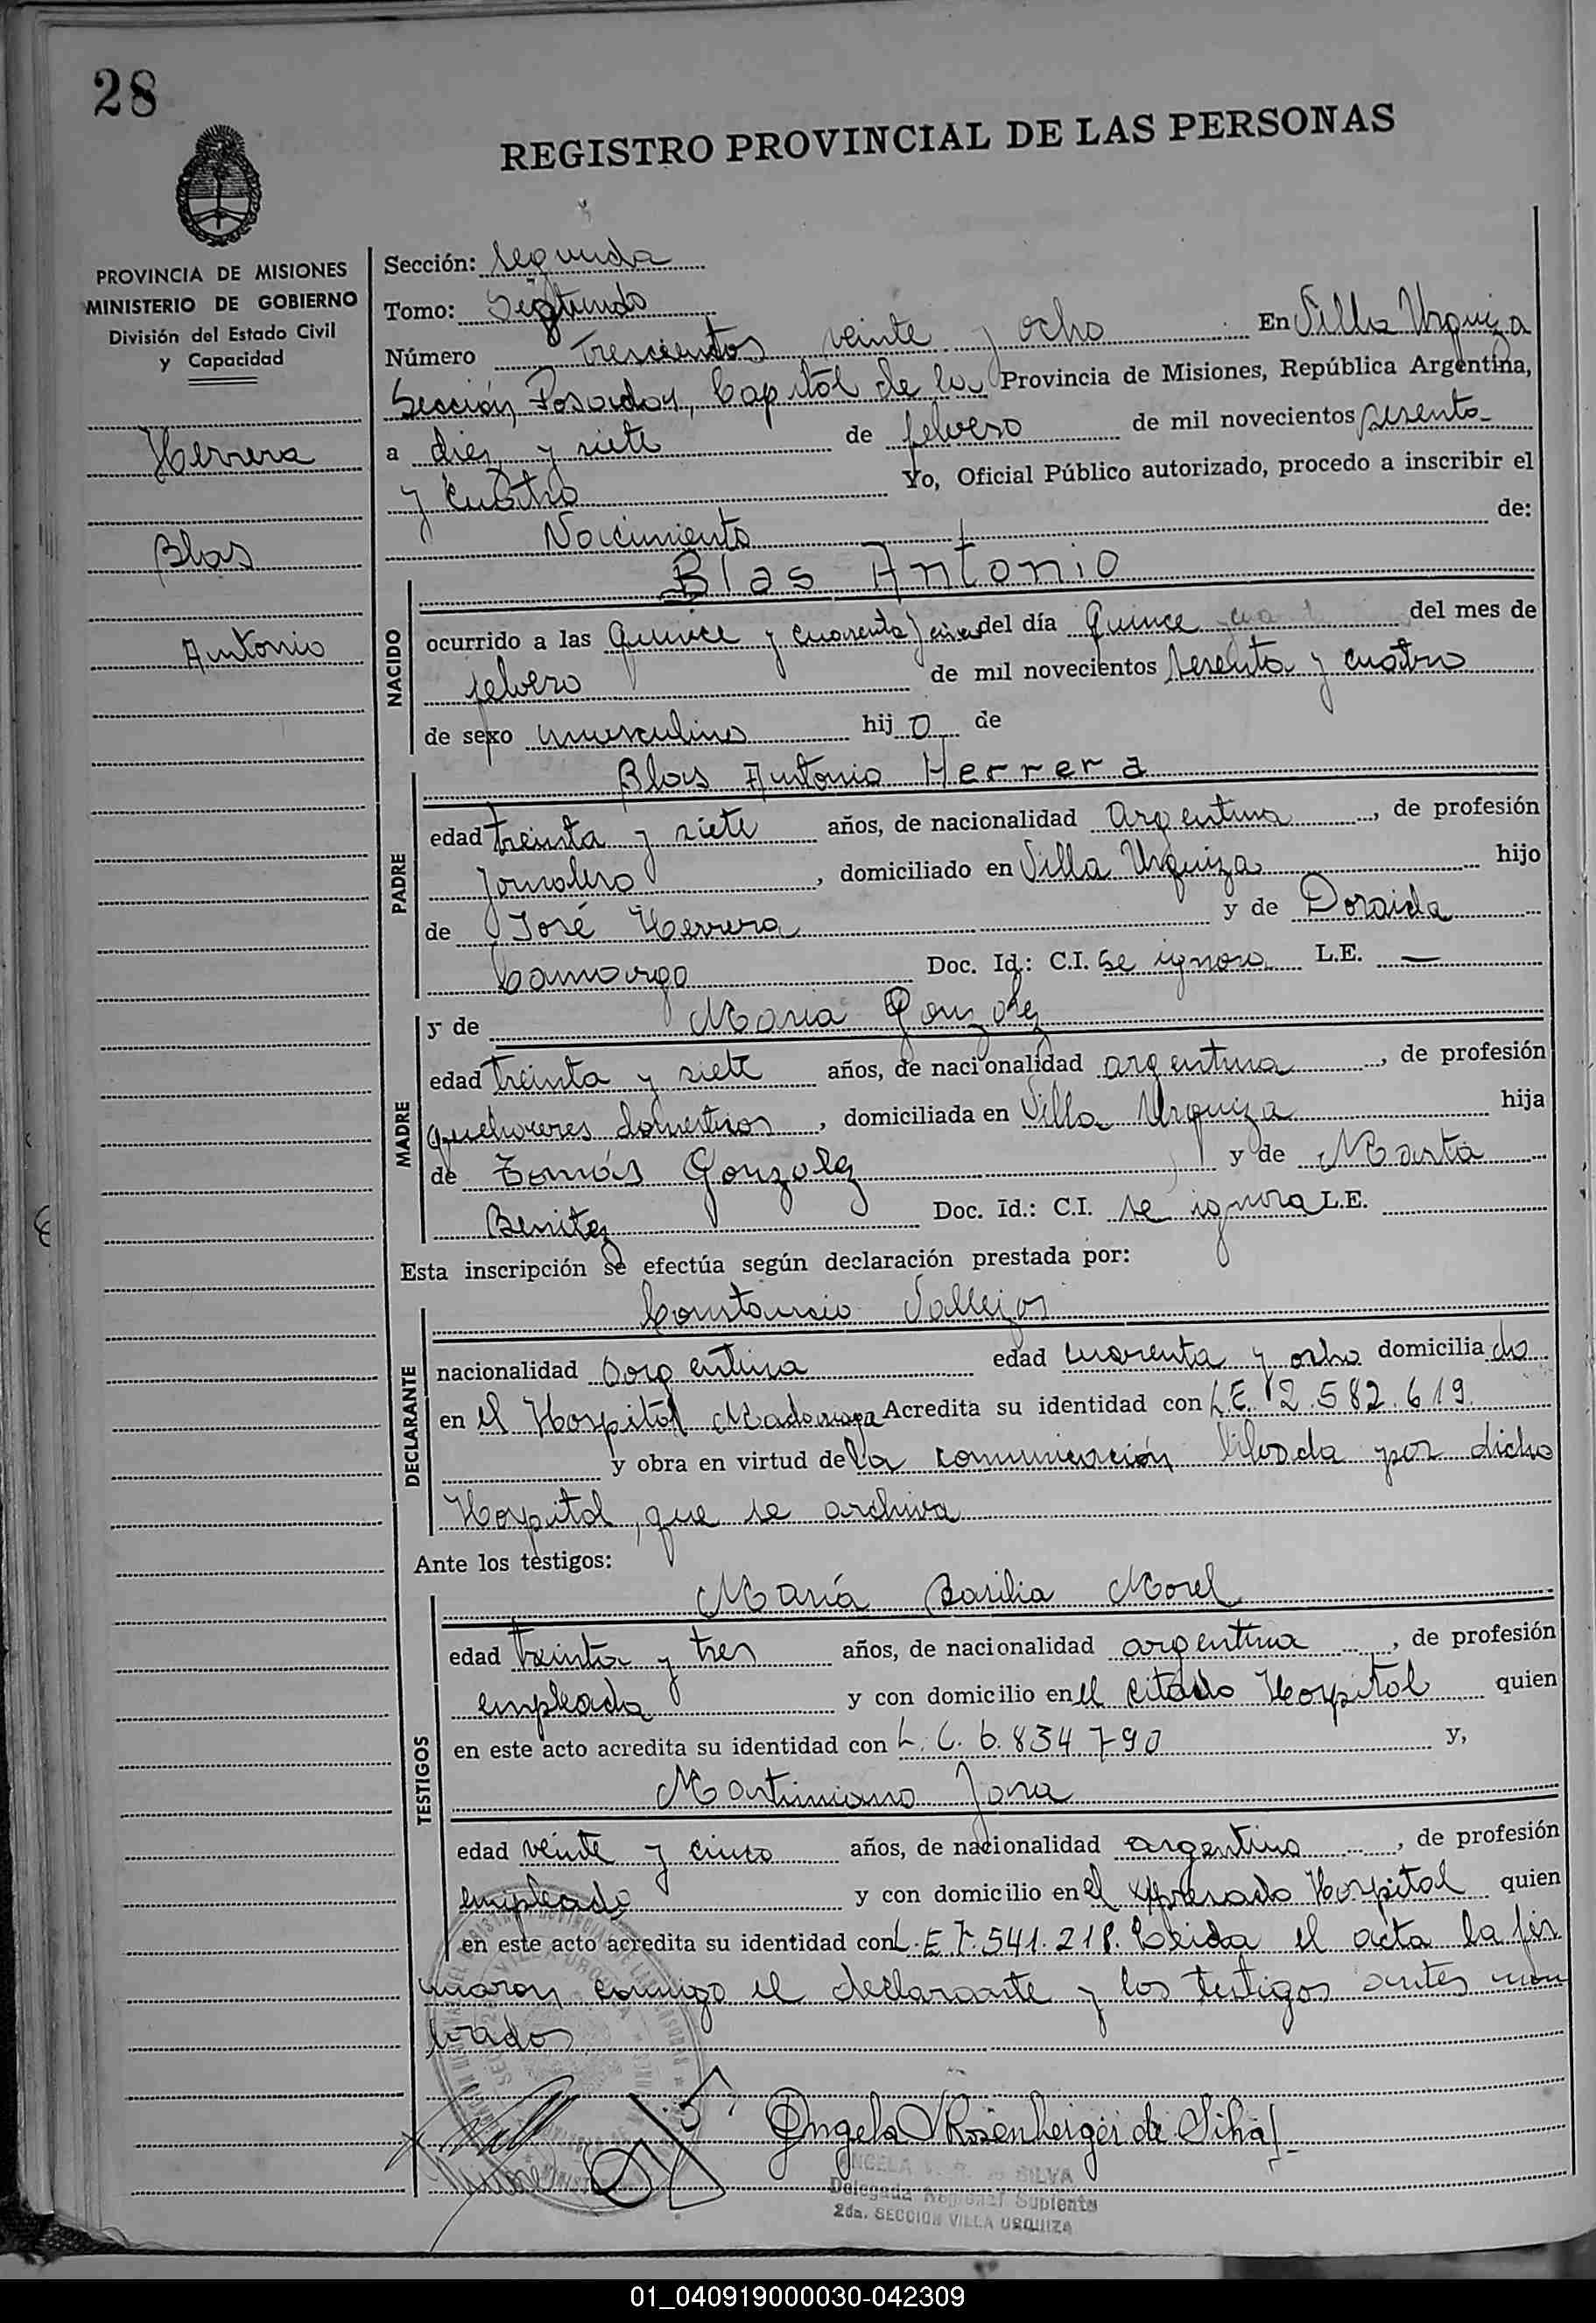 28
REGISTRO PROVINCIAL DE LAS PERSONAS
PROVINCIA DE MISIONES
MINISTERIO DE GOBIERNO
División del Estado Civil
y Capacidad
Herrera
Blas
Antonio
Sección: Segunda
Tomo: Segundo
Número trescientos veinte y ocho En Villa Urquiza
Sección, Posadas, Capital de la Provincia de Misiones, República Argentina,
a diez y siete de febrero de mil novecientos sesenta
y cuatro Yo, Oficial Público autorizado, procedo a inscribir el
Nacimiento de:
NACIDO
Blas Antonio
ocurrido a las quince y cuarenta y cinco del día quince del mes de
febrero de mil novecientos sesenta y cuatro
de sexo masculino hijo de
PADRE
Blas Antonio Herrera
edad treinta y siete años, de nacionalidad Argentina, de profesión
Jornalero, domiciliado en Villa Urquiza hijo
de José Herrera y de Doraida
Camargo Doc. Id.: C.I. se ignora L.E. —
MADRE
y de María Gonzalez
edad treinta y siete años, de nacionalidad argentina, de profesión
quehaceres domesticos, domiciliada en Villa Urquiza hija
de Tomás Gonzalez y de Marta
Benitez Doc. Id.: C.I. se ignora L.E.
Esta inscripción se efectúa según declaración prestada por:
DECLARANTE
Constancio Vallejos
nacionalidad argentina edad cuarenta y ocho domiciliado
en el Hospital Madariaga Acredita su identidad con L.E. 2.582.619.
y obra en virtud de la comunicación librada por dicho
Hospital, que se archiva
Ante los testigos:
TESTIGOS
María Basilia Morel
edad treinta y tres años, de nacionalidad argentina, de profesión
empleada y con domicilio en el citado Hospital quien
en este acto acredita su identidad con L.C. 6.834.790 y,
Martiniano Jara
edad veinte y cinco años, de nacionalidad argentino, de profesión
empleado y con domicilio en el expresado Hospital quien
en este acto acredita su identidad con L.E 7.541.218. Leida el acta la fir
maron conmigo el declarante y los testigos antes nom
brados
Angela V Rosenberger de Silva
ANGELA V. R. de SILVA
Delegada Regional Suplente
2da. SECCION VILLA URQUIZA
01_040919000030-042309